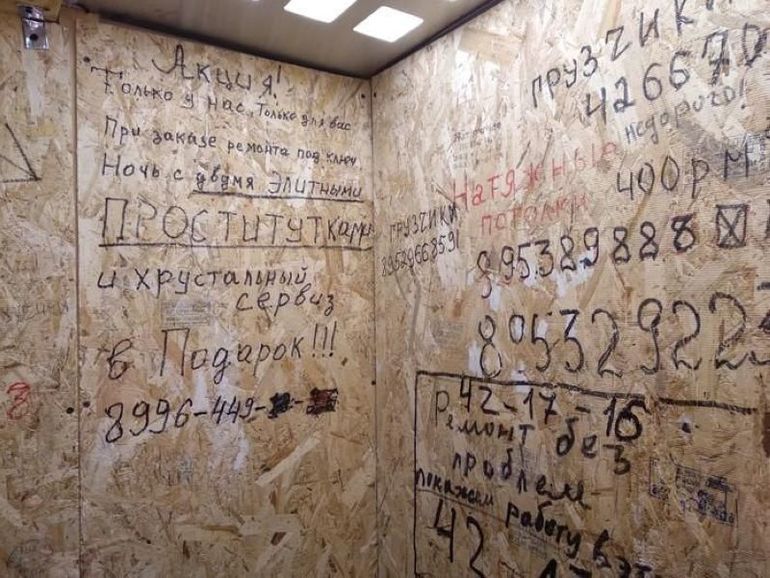 Акция!
Только у нас, только для вас
При заказе ремонта под ключ
Ночь с двумя Элитными
ПРОСТИТУТКами
и хрустальный
сервиз
в Подарок!!!
8996-449-
ГРУЗЧИКИ
89529668591
ГРУЗЧИКИ
426670
недорого!
Натяжные
потолки
400р м
895389888
895329223
42-17-16
Ремонт без
проблем
покажем работу в
42